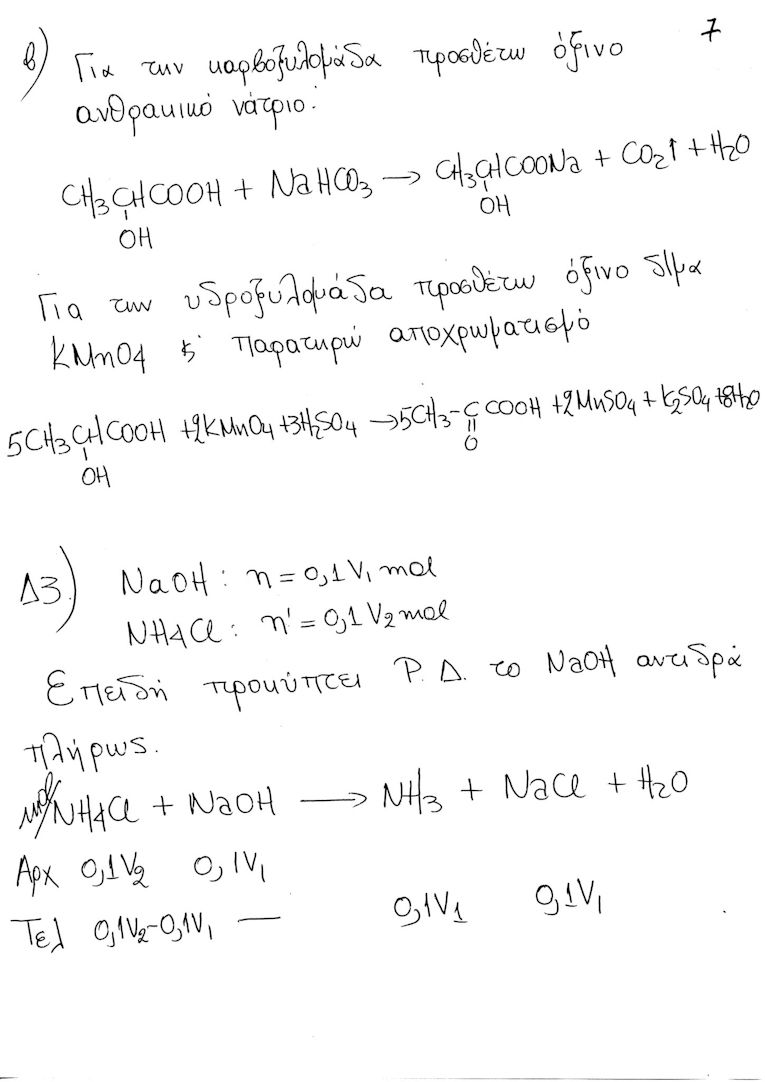 7
β) Για την καρβοξυλομάδα προσθέτω όξινο
ανθρακικό νάτριο:
CH3CHCOOH + NaHCO3 → CH3CHCOONa + CO2↑ + H2O
OH OH
Για την υδροξυλομάδα προσθέτω όξινο δ/μα
KMnO4 & παρατηρώ αποχρωματισμό
5CH3CHCOOH +2KMnO4 +3H2SO4 → 5CH3-C COOH +2MnSO4 + K2SO4 +8H2O
OH O
Δ3) NaOH: n = 0,1V1 mol
NH4Cl: n' = 0,1V2 mol
Επειδή προκύπτει Ρ.Δ. το NaOH αντιδρά
πλήρως.
mol/ NH4Cl + NaOH → NH3 + NaCl + H2O
Αρχ 0,1V2 0,1V1
Τελ 0,1V2-0,1V1 — 0,1V1 0,1V1